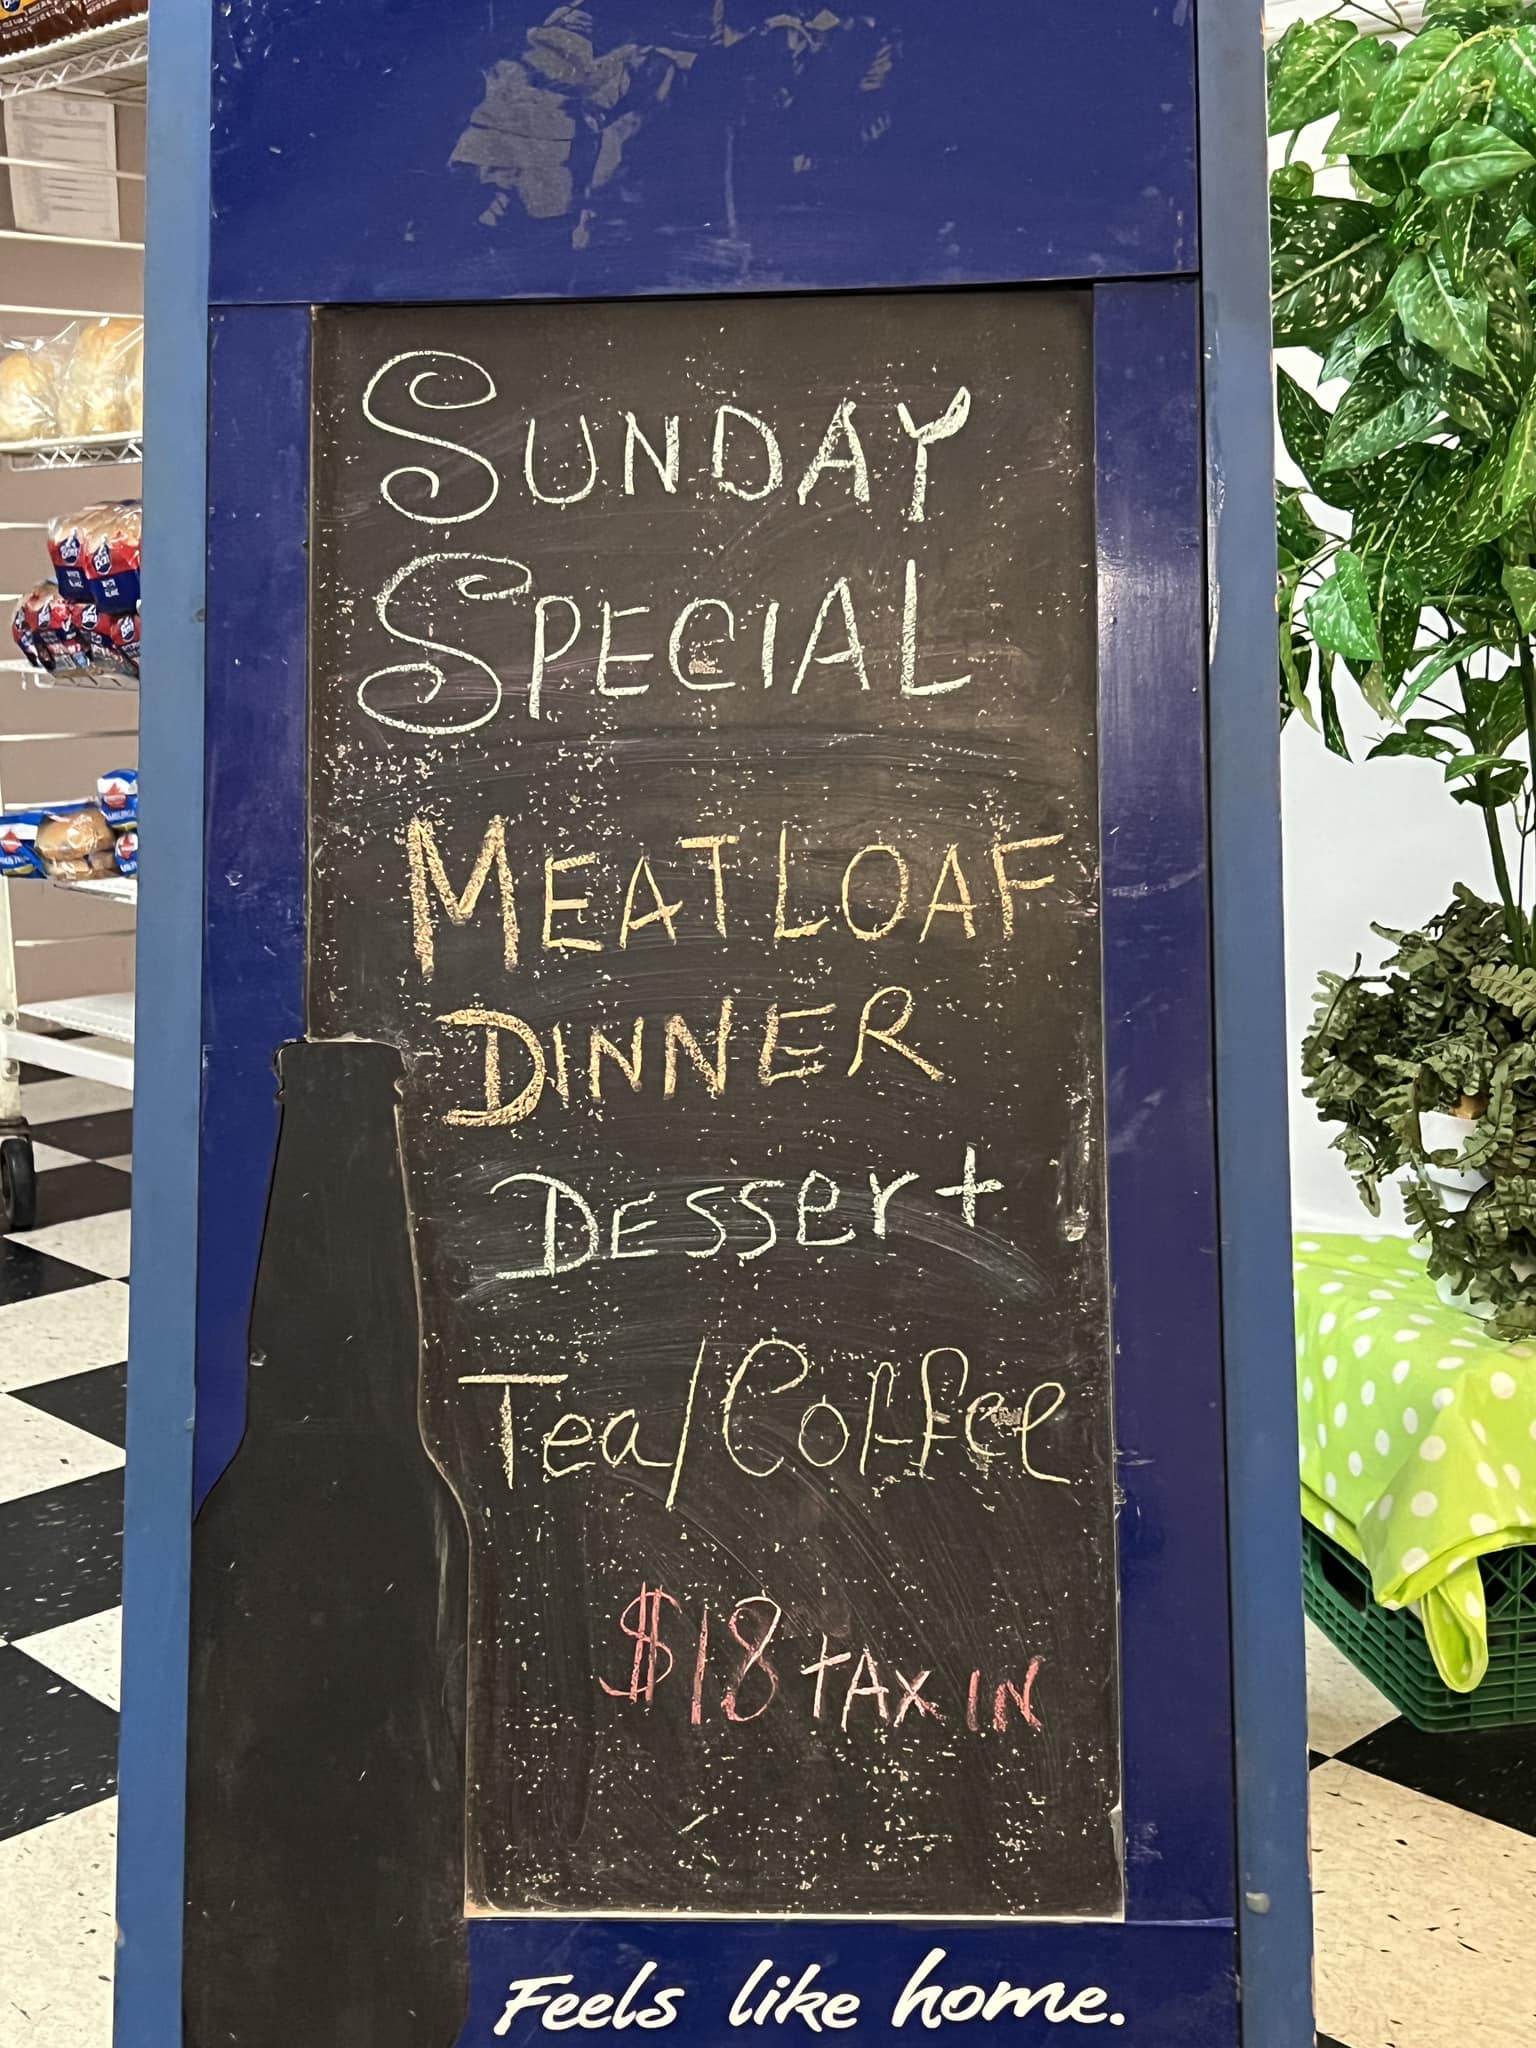 SUNDAY
SPECIAL
MEATLOAF
DINNER
DESSert
Tea/Coffee
$18 tAX IN
Feels like home.